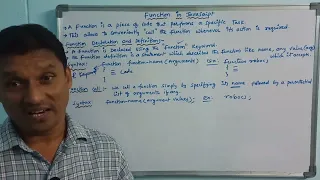 Function in JavaScript
A Function is a piece of code that performs a specific Task.
This allow to conveniently "call" the function whenever its action is required.
Function Declaration and Definition:-
A Function is Declared using the "function" Keyword.
the function definition is a statement which describes the function like name, any value (args) which it accept
Syntax: function function-name (arguments) Ex: function nobow()
{ Code {
} }
Function call:- We call a function simply by specifying its name followed by a parenthesized
list of arguments if any.
Syntax function-name (argument values); Ex: nobow();